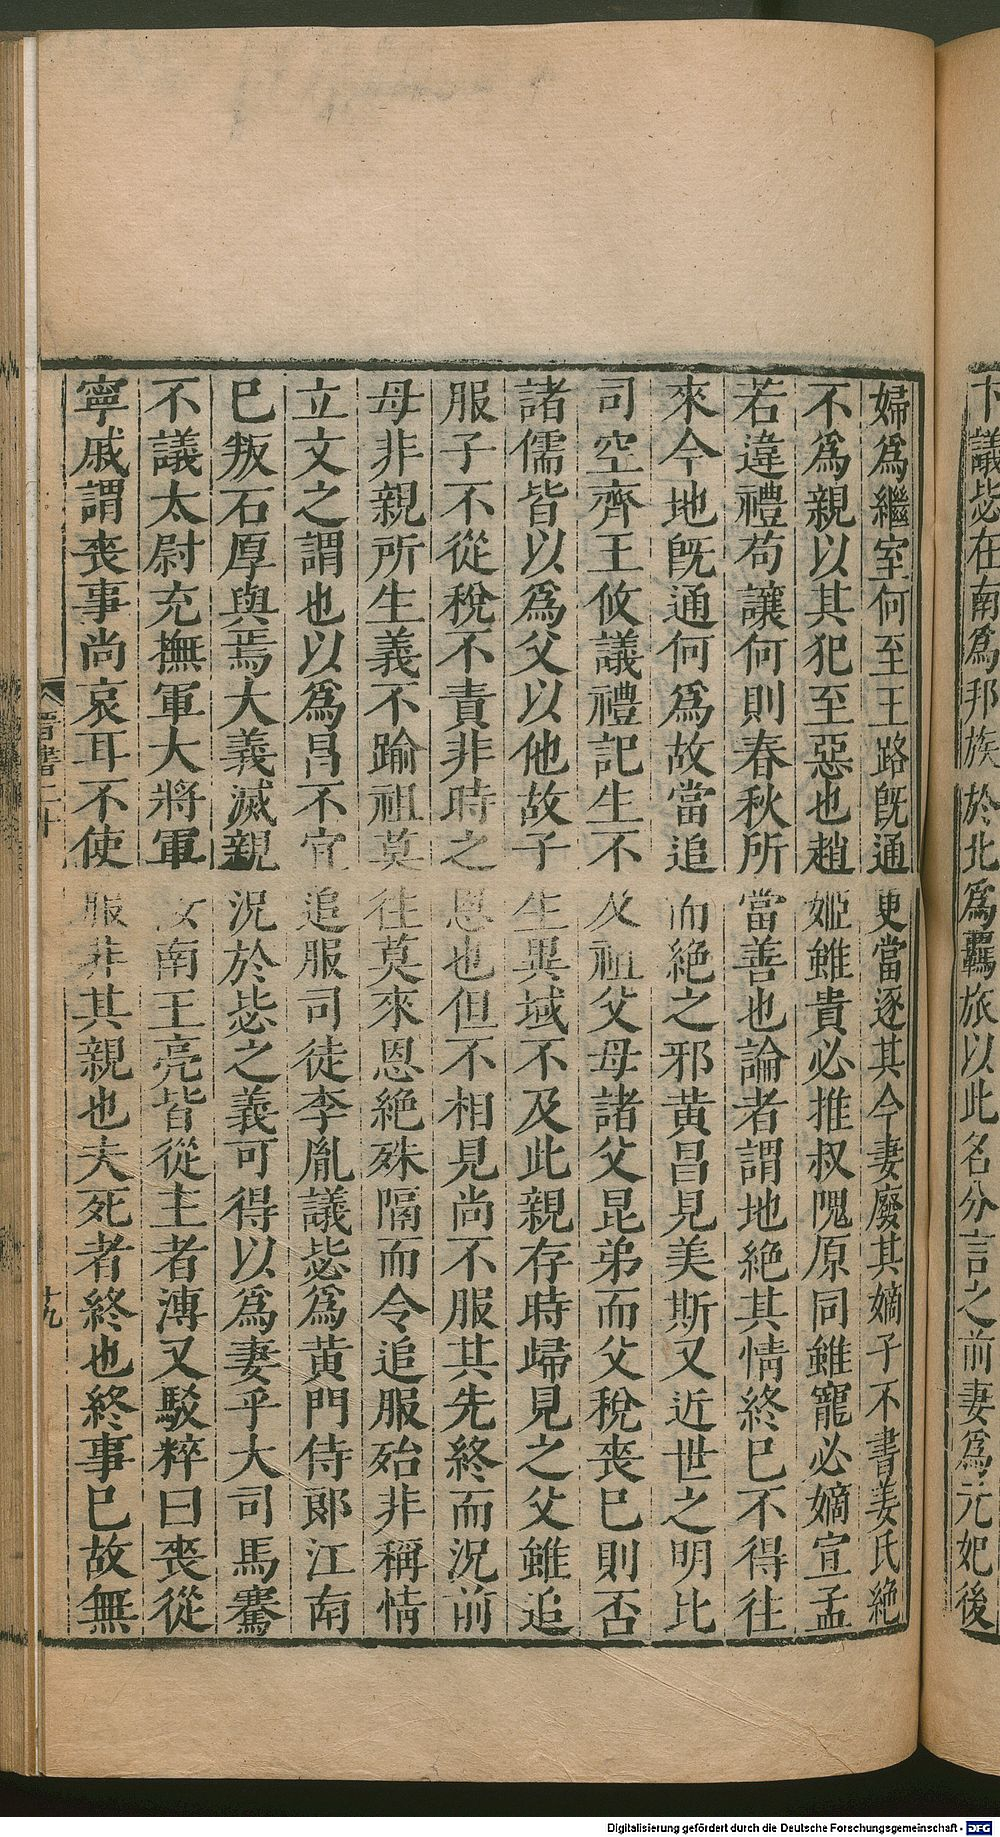 下議毖在南爲邦族於北爲羈旅以此名分言之前妻爲元妃後
婦爲繼室何至王路旣通更當逐其今妻廢其嫡子不書姜氏絶
不爲親以其犯至惡也趙姬雖貴必推叔隗原同雖寵必嫡宣孟
若違禮苟讓何則春秋所當善也論者謂地絶其情終已不得往
來今地旣通何爲故當追而絶之邪黃昌見美斯又近世之明比
司空齊王攸議禮記生不及祖父母諸父昆弟而父稅喪已則否
諸儒皆以爲父以他故子生異域不及此親存時歸見之父雖追
服子不從稅不責非時之恩也但不相見尚不服其先終而況前
母非親所生義不踰祖莫往莫來恩絶殊隔而令追服殆非稱情
立文之謂也以爲昌不宜追服司徒李胤議毖爲黃門侍郞江南
已叛石厚與焉大義滅親況於毖之義可得以爲妻乎大司馬騫
不議太尉充撫軍大將軍汝南王亮皆從主者溥又駁粹曰喪從
寧戚謂喪事尚哀耳不使服非其親也夫死者終也終事已故無
晉書二十
十九
Digitalisierung gefördert durch die Deutsche Forschungsgemeinschaft - DFG